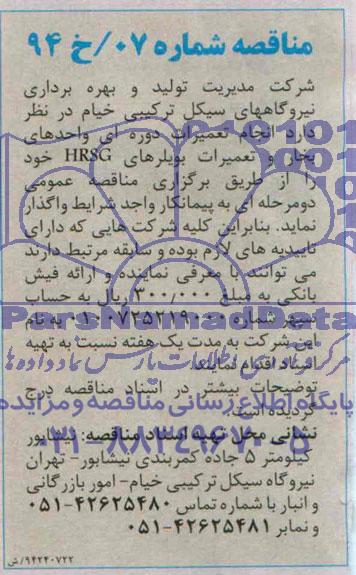 مناقصه شماره ۰۷/خ ۹۴
شرکت مدیریت تولید و بهره برداری
نیروگاههای سیکل ترکیبی خیام در نظر
دارد انجام تعمیرات دوره ای واحدهای
بخار و تعمیرات بویلرهای HRSG خود
را از طریق برگزاری مناقصه عمومی
دومرحله ای به پیمانکار واجد شرایط واگذار
نماید. بنابراین کلیه شرکت هایی که دارای
تاییدیه های لازم بوده و سابقه مرتبط دارند
می توانند با معرفی نماینده و ارائه فیش
بانکی به مبلغ ۳۰۰/۰۰۰ ریال به حساب
سپهر شماره ۰۱۰۰۷۲۵۲۱۹۰۰۰ به نام
این شرکت به مدت یک هفته نسبت به تهیه
اسناد اقدام نمایند.
توضیحات بیشتر در اسناد مناقصه درج
گردیده است.
نشانی محل تهیه اسناد مناقصه: نیشابور
کیلومتر ۵ جاده کمربندی نیشابور- تهران
نیروگاه سیکل ترکیبی خیام- امور بازرگانی
و انبار با شماره تماس ۴۲۶۲۵۴۸۰-۰۵۱
و نمابر ۴۲۶۲۵۴۸۱-۰۵۱
۹۴۲۴۰۷۲۲/ش
ParsNamadData
پایگاه اطلاع رسانی مناقصه و مزایده